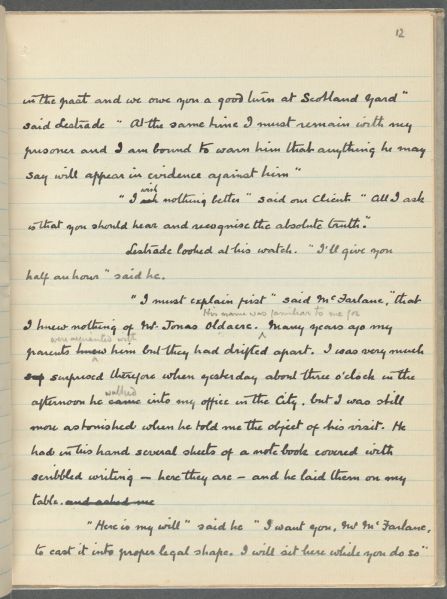 12
in the past and we owe you a good turn at Scotland Yard"
said Lestrade " At the same time I must remain with my
prisoner and I am bound to warn him that anything he may
say will appear in evidence against him"
wish
"I ask nothing better" said our Client. "All I ask
is that you should hear and recognise the absolute truth."
Lestrade looked at his watch. "I'll give you
half an hour" said he.
"I must explain first" said McFarlane, "that
His name was familiar to me for
I knew nothing of Mr. Jonas Oldacre. Many years ago my
were acquainted with
parents knew him but they had drifted apart. I was very much
surprised therefore when yesterday about three o'clock in the
walked
afternoon he came into my office in the City, but I was still
more astonished when he told me the object of his visit. He
had in his hand several sheets of a note book covered with
scribbled writing — here they are — and he laid them on my
table. and asked me
"Here is my will" said he "I want you, Mr McFarlane,
to cast it into proper legal shape. I will sit here while you do so"